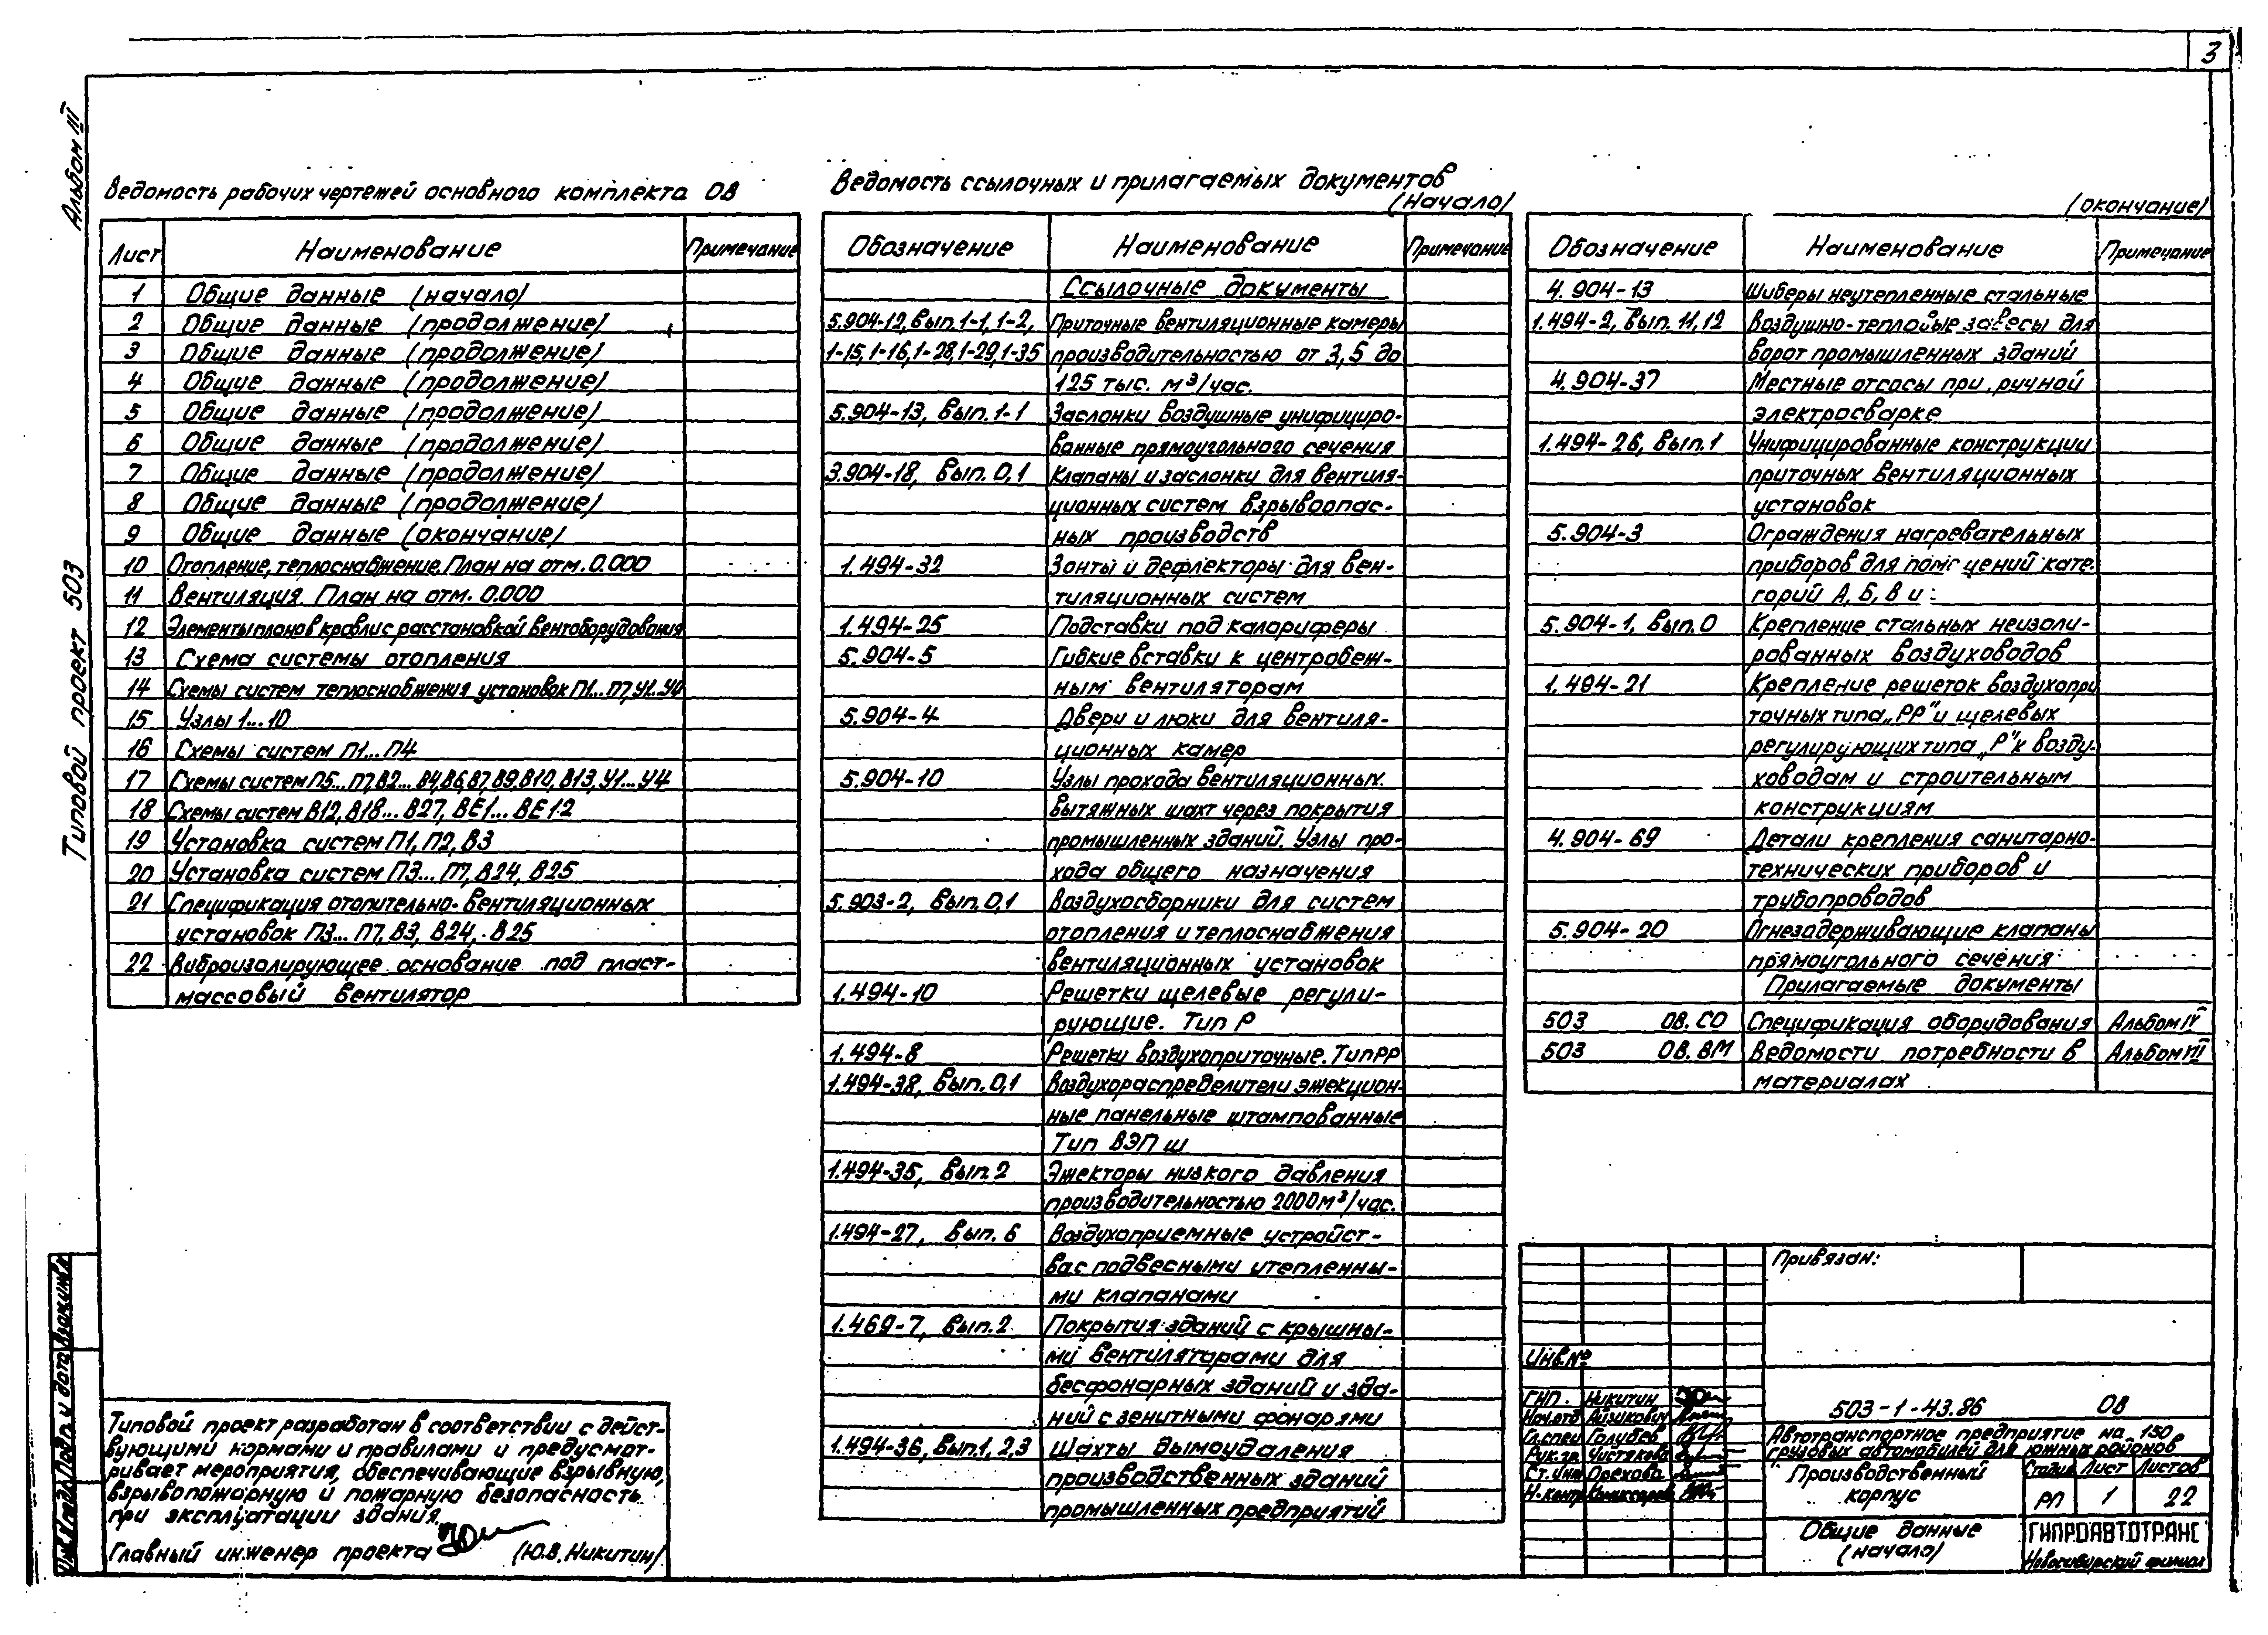 3
Альбом III
Типовой проект 503
Ведомость рабочих чертежей основного комплекта ОВ
Лист Наименование Примечание
1 Общие данные (начало)
2 Общие данные (продолжение)
3 Общие данные (продолжение)
4 Общие данные (продолжение)
5 Общие данные (продолжение)
6 Общие данные (продолжение)
7 Общие данные (продолжение)
8 Общие данные (продолжение)
9 Общие данные (окончание)
10 Отопление, теплоснабжение. План на отм. 0.000
11 Вентиляция. План на отм. 0.000
12 Элементы планов кровли с расстановкой вентоборудования
13 Схема системы отопления
14 Схемы систем теплоснабжения установок П1...П7, У1...У4
15 Узлы 1...10
16 Схемы систем П1...П4
17 Схемы систем П5...П7, В2...В4, В6, В7, В9, В10, В13, У1...У4
18 Схемы систем В12, В18...В27, ВЕ1...ВЕ12
19 Установка систем П1, П2, В3
20 Установка систем П3...П7, В24, В25
21 Спецификация отопительно-вентиляционных
установок П3...П7, В3, В24, В25
22 Виброизолирующее основание под пласт-
массовый вентилятор
Типовой проект разработан в соответствии с дейст-
вующими нормами и правилами и предусмат-
ривает мероприятия, обеспечивающие взрывную,
взрывопожарную и пожарную безопасность
при эксплуатации здания.
Главный инженер проекта (Ю.В. Никитин)
Ведомость ссылочных и прилагаемых документов
(начало)
Обозначение Наименование Примечание
Ссылочные документы
5.904-12, вып. 1-1, 1-2, Приточные вентиляционные камеры
1-15, 1-16, 1-28, 1-29, 1-35 производительностью от 3,5 до
125 тыс. м³/час.
5.904-13, вып. 1-1 Заслонки воздушные унифициро-
ванные прямоугольного сечения
3.904-18, вып. 0,1 Клапаны и заслонки для вентиля-
ционных систем взрывоопас-
ных производств
1.494-32 Зонты и дефлекторы для вен-
тиляционных систем
1.494-25 Подставки под калориферы
5.904-5 Гибкие вставки к центробеж-
ным вентиляторам
5.904-4 Двери и люки для вентиля-
ционных камер
5.904-10 Узлы прохода вентиляционных
вытяжных шахт через покрытия
промышленных зданий. Узлы про-
хода общего назначения
5.903-2, вып. 0,1 Воздухосборники для систем
отопления и теплоснабжения
вентиляционных установок
1.494-10 Решетки щелевые регули-
рующие. Тип Р
1.494-8 Решетки воздухоприточные. Тип РР
1.494-38, вып. 0,1 Воздухораспределители эжекцион-
ные панельные штампованные
Тип ВЭП ш
1.494-35, вып. 2 Эжекторы низкого давления
производительностью 2000 м³/час.
1.494-27, вып. 6 Воздухоприемные устройст-
ва с подвесными утепленны-
ми клапанами
1.469-7, вып. 2 Покрытия зданий с крышны-
ми вентиляторами для
бесфонарных зданий и зда-
ний с зенитными фонарями
1.494-36, вып. 1, 2, 3 Шахты дымоудаления
производственных зданий
промышленных предприятий
(окончание)
Обозначение Наименование Примечание
4.904-13 Шиберы неутепленные стальные
1.494-2, вып. 11, 12 Воздушно-тепловые завесы для
ворот промышленных зданий
4.904-37 Местные отсосы при ручной
электросварке
1.494-26, вып. 1 Унифицированные конструкции
приточных вентиляционных
установок
5.904-3 Ограждения нагревательных
приборов для помещений кате-
горий А, Б, В и
5.904-1, вып. 0 Крепление стальных неизоли-
рованных воздуховодов
1.494-21 Крепление решеток воздухопри
точных типа „РР" и щелевых
регулирующих типа „Р" к возду-
ховодам и строительным
конструкциям
4.904-69 Детали крепления санитарно-
технических приборов и
трубопроводов
5.904-20 Огнезадерживающие клапаны
прямоугольного сечения
Прилагаемые документы
503 ОВ.СО Спецификация оборудования Альбом IV
503 ОВ.ВМ Ведомости потребности в Альбом VII
материалах
Привязан:
Инв.№
ГИП. Никитин
Нач.отд Айзикович
Гл.спец Голубев
Рук.гр. Чистякова
Ст.инж Орехова
Н.контр Комиссарова
503-1-43.86 ОВ
Автотранспортное предприятие на 150
грузовых автомобилей для южных районов
Производственный
корпус
Стадия Лист Листов
РП 1 22
Общие данные
(начало)
ГИПРОАВТОТРАНС
Новосибирский филиал
Инв.№подл. Подп. и дата Взам.инв.№